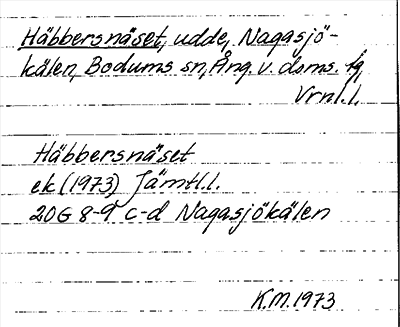 Häbbersnäset, udde, Nagasjö-
kälen, Bodums sn, Ång. v. dsms. tg
Vrnl.l.
Häbbersnäset
ek (1973) Jämtl.l.
20G 8-9 c-d Nagasjökälen
KM.1973